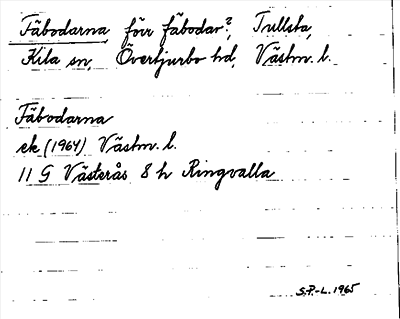 Fäbodarna, förr fäbodar?, Tullsta,
Kila sn, Övertjurbo hd, Västm. l.
Fäbodarna
ek (1964) Västm. l.
11 G Västerås 8 h Ringvalla
S.P.-L. 1965